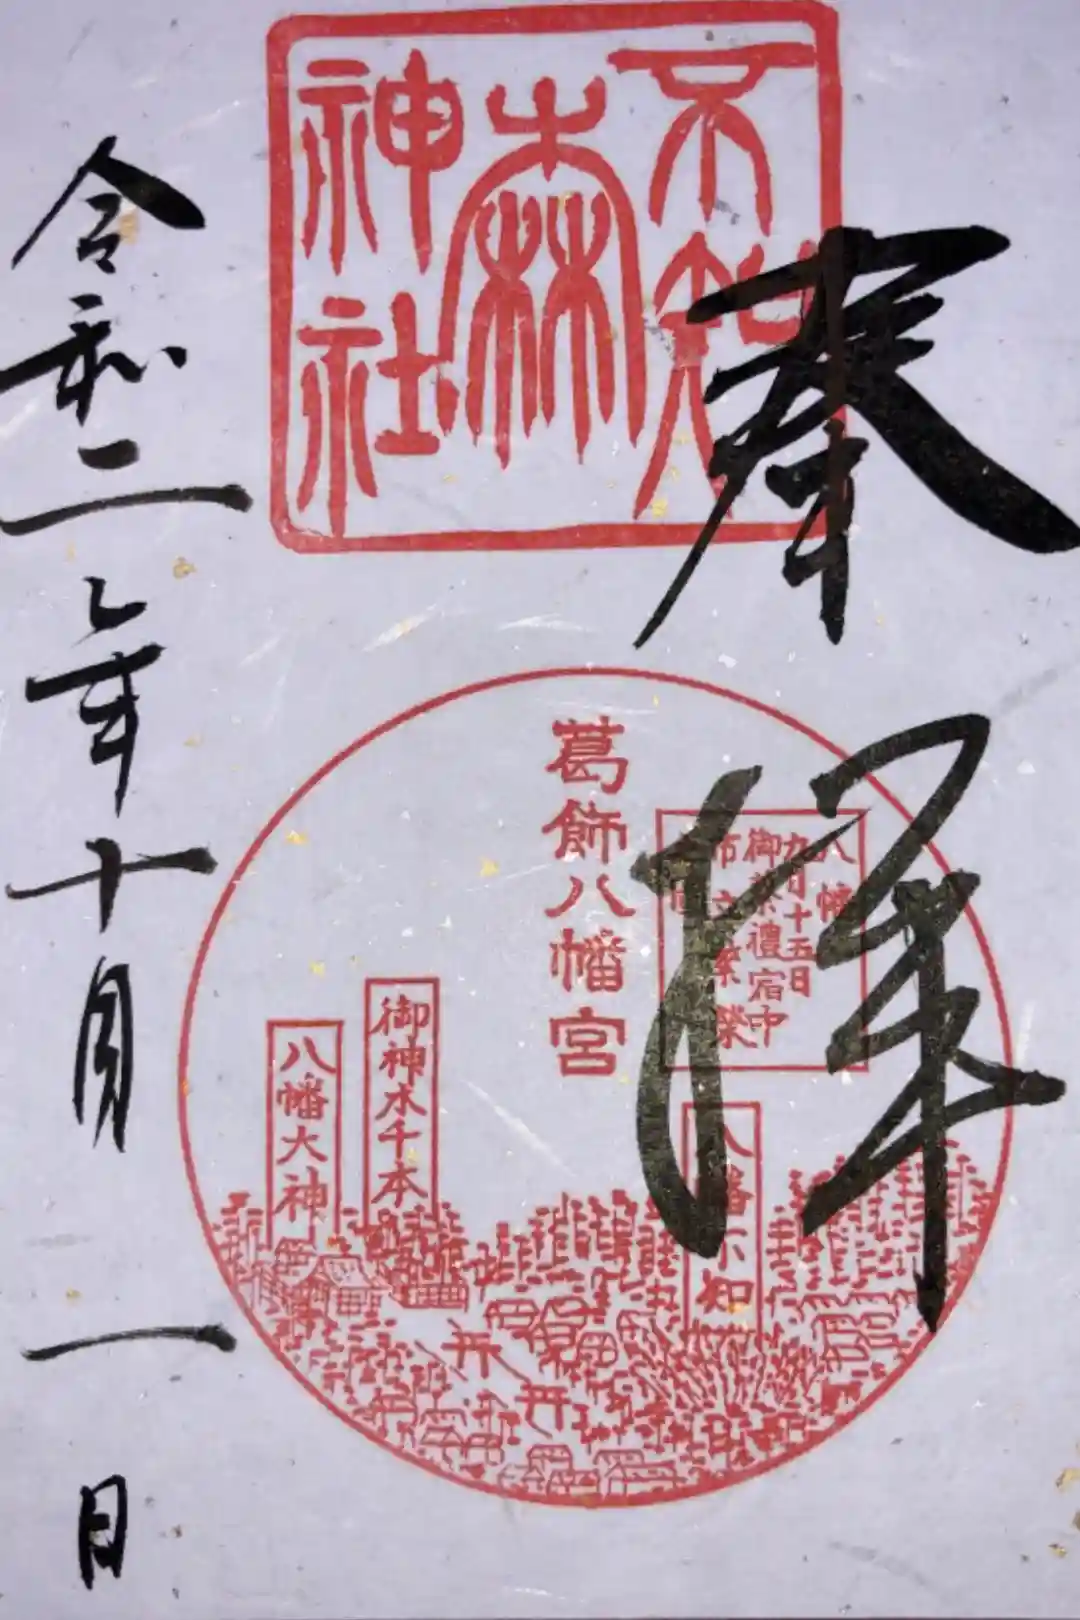 奉拝
不知
森
神社
葛飾八幡宮
八幡
九月十五日
御祭禮宿中
市立繁榮
八幡不知
御神木千本
八幡大神
令和二年十月一日